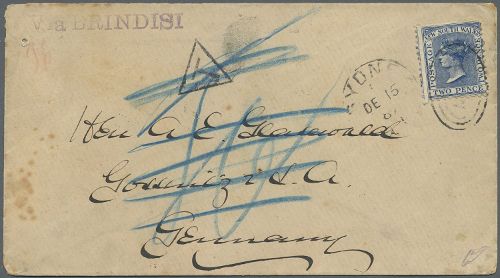 Via BRINDISI
T
SYDN
DE 15
POSTAGE
NEW SOUTH WALES
TWO PENCE
Herrn A. E.
Gössnitz i S. A.
Germany